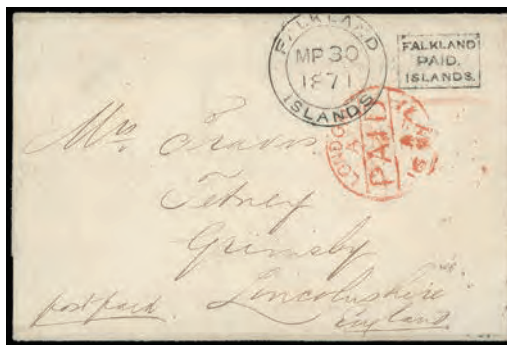 FALKLAND
MR 30
1871
ISLANDS
FALKLAND
PAID.
ISLANDS.
LONDON
PAID
Mrs Travis
Tetney
Grimsby
Lincolnshire
England
post paid